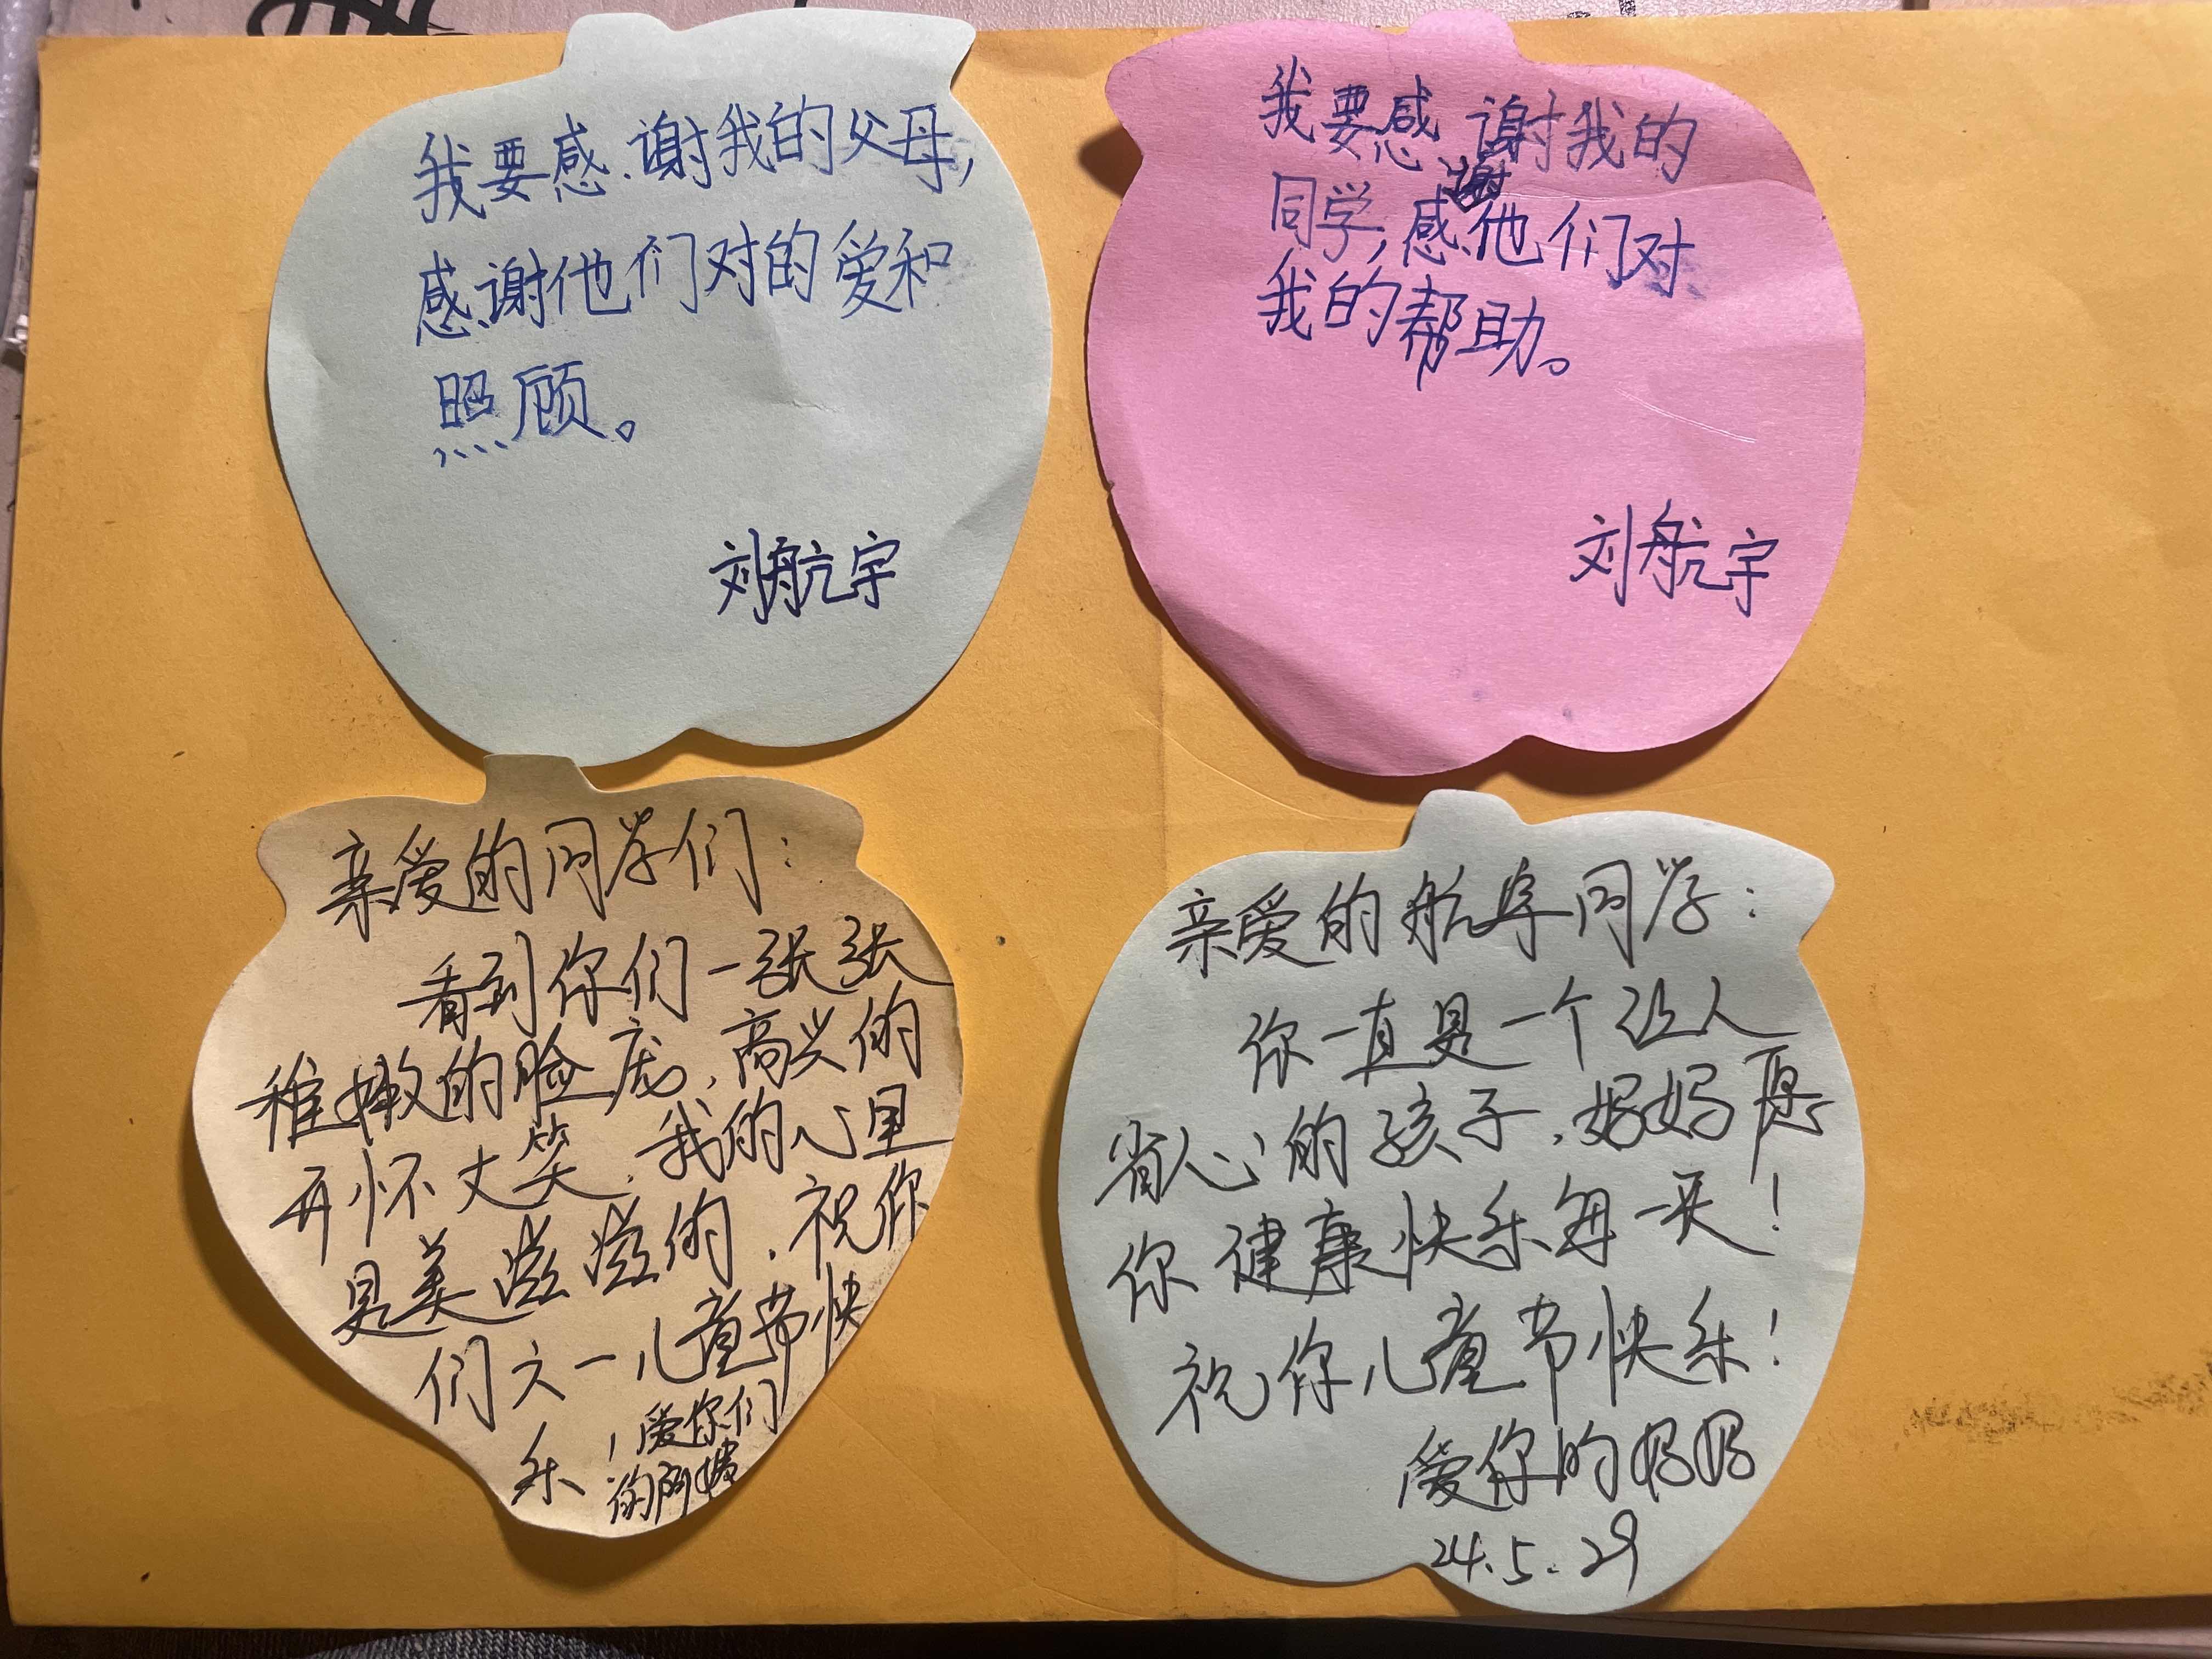 我要感谢我的父母,
感谢他们对的爱和
照顾。
刘航宇
我要感谢我的
同学,感谢他们对
我的帮助。
刘航宇
亲爱的同学们:
看到你们一张张
稚嫩的脸庞,高兴的
开怀大笑,我的心里
是美滋滋的,祝你
们六一儿童节快
乐,爱你们
的阿姨
亲爱的航宇同学:
你一直是一个让人
省心的孩子,妈妈愿
你健康快乐每一天!
祝你儿童节快乐!
爱你的妈妈
24.5.29